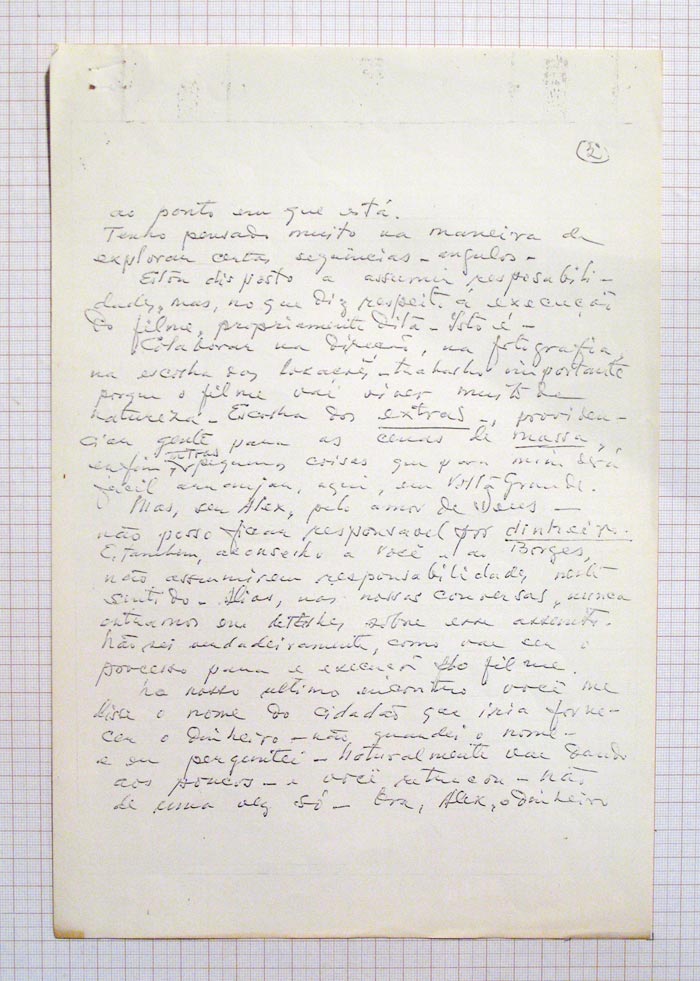 2
ao ponto em que está.
Tenho pensado muito na maneira de
explorar certas sequencias - angulos -
Estou disposto a assumir resposabili-
dades, mas, no que diz respeito á execução
do filme, propriamente dita - Isto é -
Colaborar na direção, na fotografia,
na escolha das locações - trabalho importante
porque o filme vai viver muito da
natureza - Escolha dos extras -, providen-
ciar gente para as cenas de massa,
enfim outras pequenas coisas que para mim será
fácil arranjar, aqui, em Volta Grande.
Mas, seu Alex, pelo amor de Deus -
não posso ficar responsavel por dinheiro.
E, tambem, aconselho a você e ao Borges,
não assumirem responsabilidades neste
sentido - Alias, nas nossas conversas, nunca
entramos em detalhes sobre esse assunto.
Não sei verdadeiramente, como vai ser o
processo para a execução do filme.
No nosso ultimo encontro você me
disse o nome do cidadão que iria forne-
cer o dinheiro - não guardei o nome -
e eu perguntei - Naturalmente vai dando
aos poucos - e você retrucou - Não
de uma vez só - Ora, Alex, o dinheiro